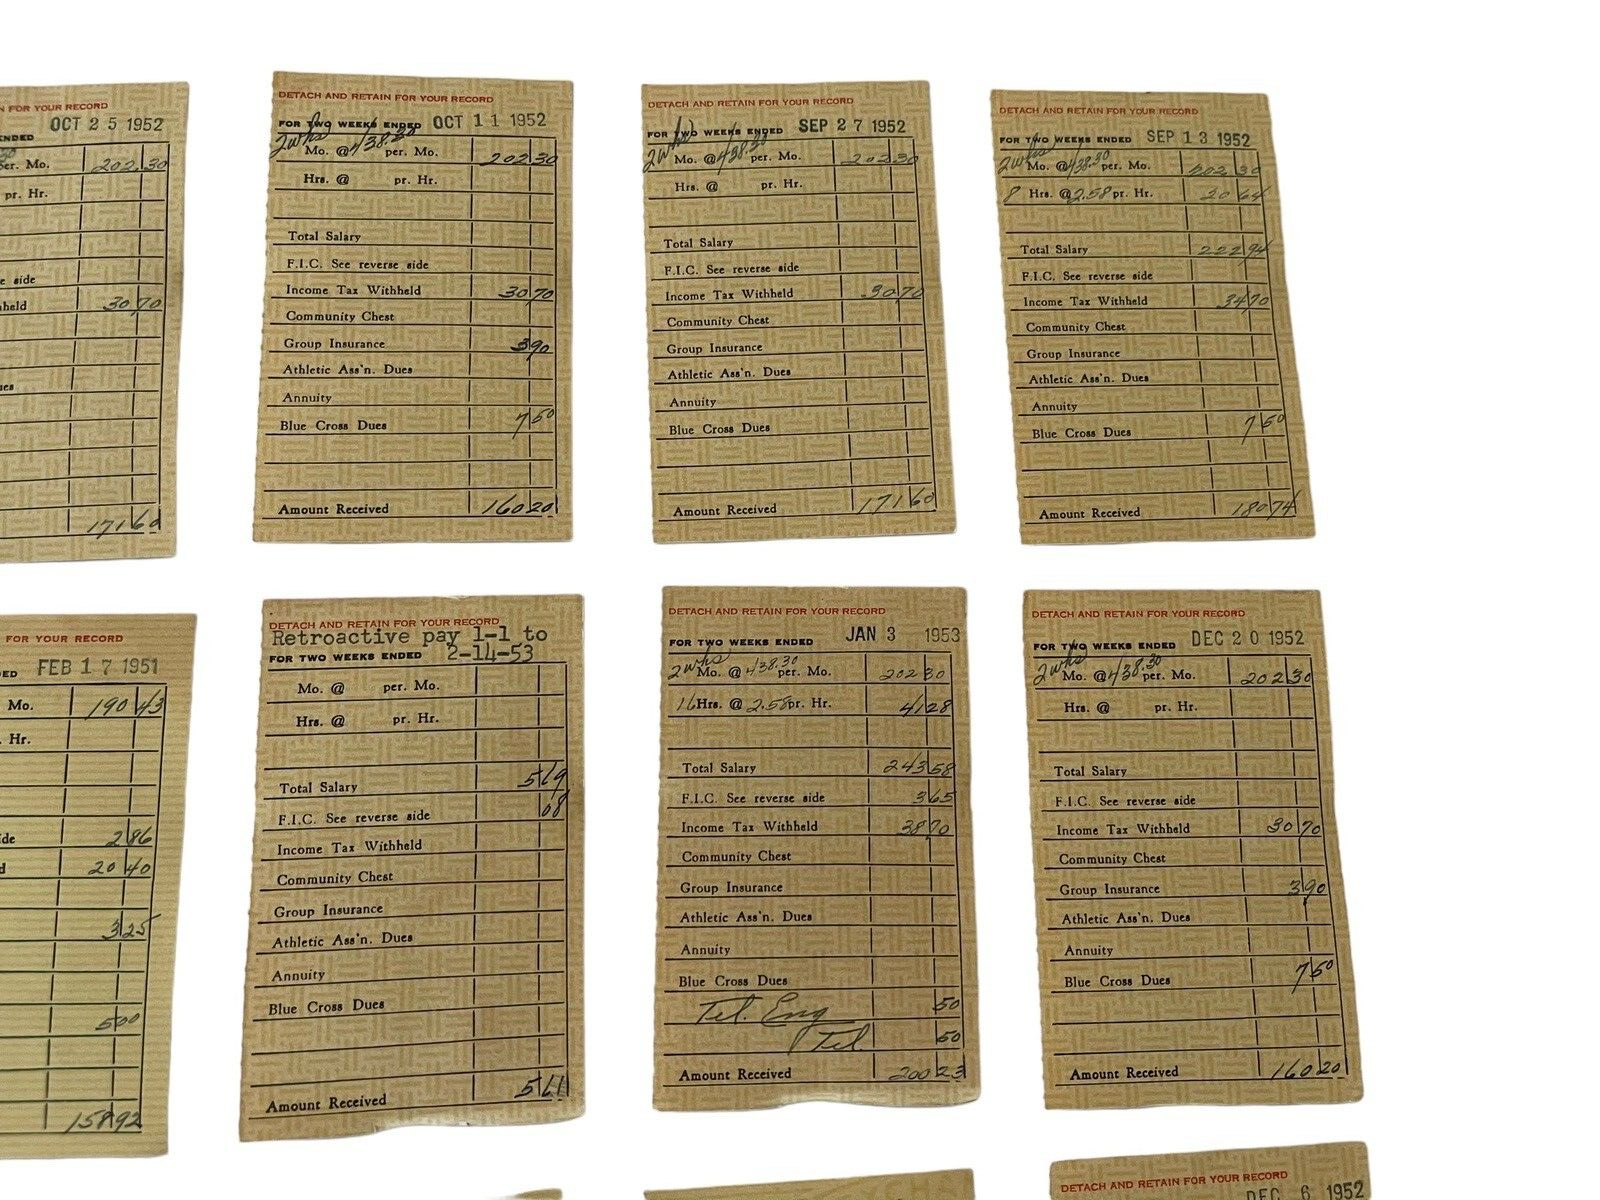 N FOR YOUR RECORD
ENDED OCT 25 1952
per. Mo. 202.30
pr. Hr.
e side
hheld 30 70
ues
171 60
DETACH AND RETAIN FOR YOUR RECORD
FOR TWO WEEKS ENDED OCT 11 1952
2 wks Mo. @ 438.30 per. Mo. 202 30
Hrs. @ pr. Hr.
Total Salary
F.I.C. See reverse side
Income Tax Withheld 30 70
Community Chest
Group Insurance 3 90
Athletic Ass'n. Dues
Annuity
Blue Cross Dues 7 50
Amount Received 160 20
DETACH AND RETAIN FOR YOUR RECORD
FOR TWO WEEKS ENDED SEP 27 1952
2 wks Mo. @ 438.30 per. Mo. 202 30
Hrs. @ pr. Hr.
Total Salary
F.I.C. See reverse side
Income Tax Withheld 30 70
Community Chest
Group Insurance
Athletic Ass'n. Dues
Annuity
Blue Cross Dues
Amount Received 171 60
DETACH AND RETAIN FOR YOUR RECORD
FOR TWO WEEKS ENDED SEP 13 1952
2 wks Mo. @ 438.30 per. Mo. 202 30
8 Hrs. @ 2.58 pr. Hr. 20 64
Total Salary 222 94
F.I.C. See reverse side
Income Tax Withheld 34 70
Community Chest
Group Insurance
Athletic Ass'n. Dues
Annuity
Blue Cross Dues 7 50
Amount Received 180 74
FOR YOUR RECORD
DED FEB 17 1951
Mo. 190 43
. Hr.
ide 2 86
d 20 40
3 25
5 00
158 92
DETACH AND RETAIN FOR YOUR RECORD
Retroactive pay 1-1 to
FOR TWO WEEKS ENDED 2-14-53
Mo. @ per. Mo.
Hrs. @ pr. Hr.
Total Salary 5 69
F.I.C. See reverse side 08
Income Tax Withheld
Community Chest
Group Insurance
Athletic Ass'n. Dues
Annuity
Blue Cross Dues
Amount Received 5 61
DETACH AND RETAIN FOR YOUR RECORD
FOR TWO WEEKS ENDED JAN 3 1953
2 wks Mo. @ 438.30 per. Mo. 202 30
16 Hrs. @ 2.58 pr. Hr. 41 28
Total Salary 243 58
F.I.C. See reverse side 3 65
Income Tax Withheld 38 70
Community Chest
Group Insurance
Athletic Ass'n. Dues
Annuity
Blue Cross Dues
Tel. Eng 50
Tel. 50
Amount Received 200 23
DETACH AND RETAIN FOR YOUR RECORD
FOR TWO WEEKS ENDED DEC 20 1952
2 wks Mo. @ 438.30 per. Mo. 202 30
Hrs. @ pr. Hr.
Total Salary
F.I.C. See reverse side
Income Tax Withheld 30 70
Community Chest
Group Insurance 3 90
Athletic Ass'n. Dues
Annuity
Blue Cross Dues 7 50
Amount Received 160 20
DETACH AND RETAIN FOR YOUR RECORD
DEC 6 1952